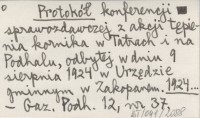 Protokół konferencji
sprawozdawczej z akcji tępie-
nia kornika w Tatrach i na
Podhalu, odbytej w dniu 9
sierpnia 1924 w Urzędzie
gminnym w Zakopanem. 1924...
Gaz. Podh. 12, nr 37.